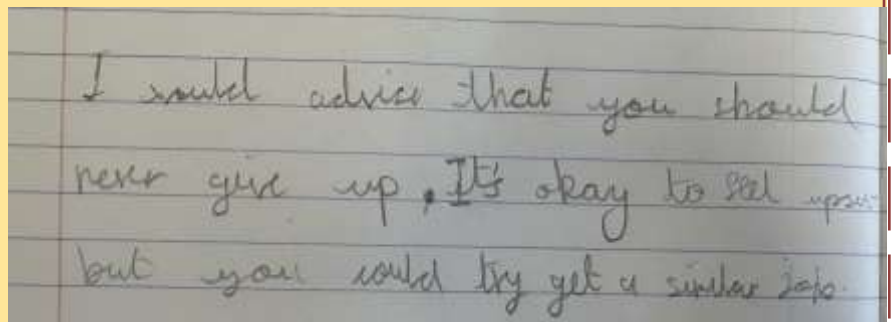 I would advice that you should
never give up. It's okay to feel upset
but you could try get a similar job.